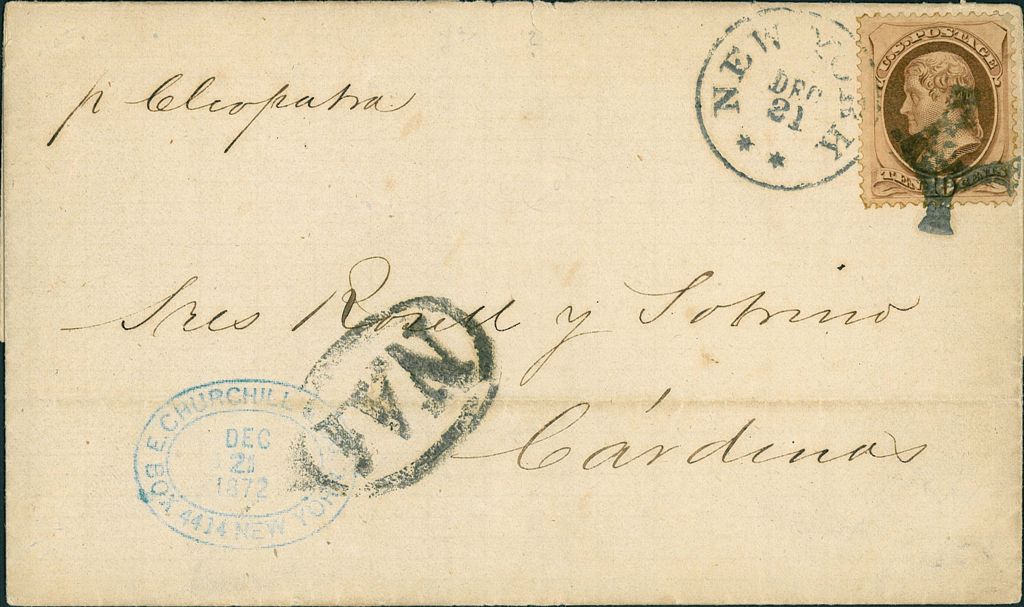 p Cleopatra
NEW YORK
DEC
21
U.S. POSTAGE
TEN 10 CENTS
Sres Rosell y Sobrino
Cárdenas
NA1
E. CHURCHILL &
DEC
21
1872
BOX 4414 NEW YORK